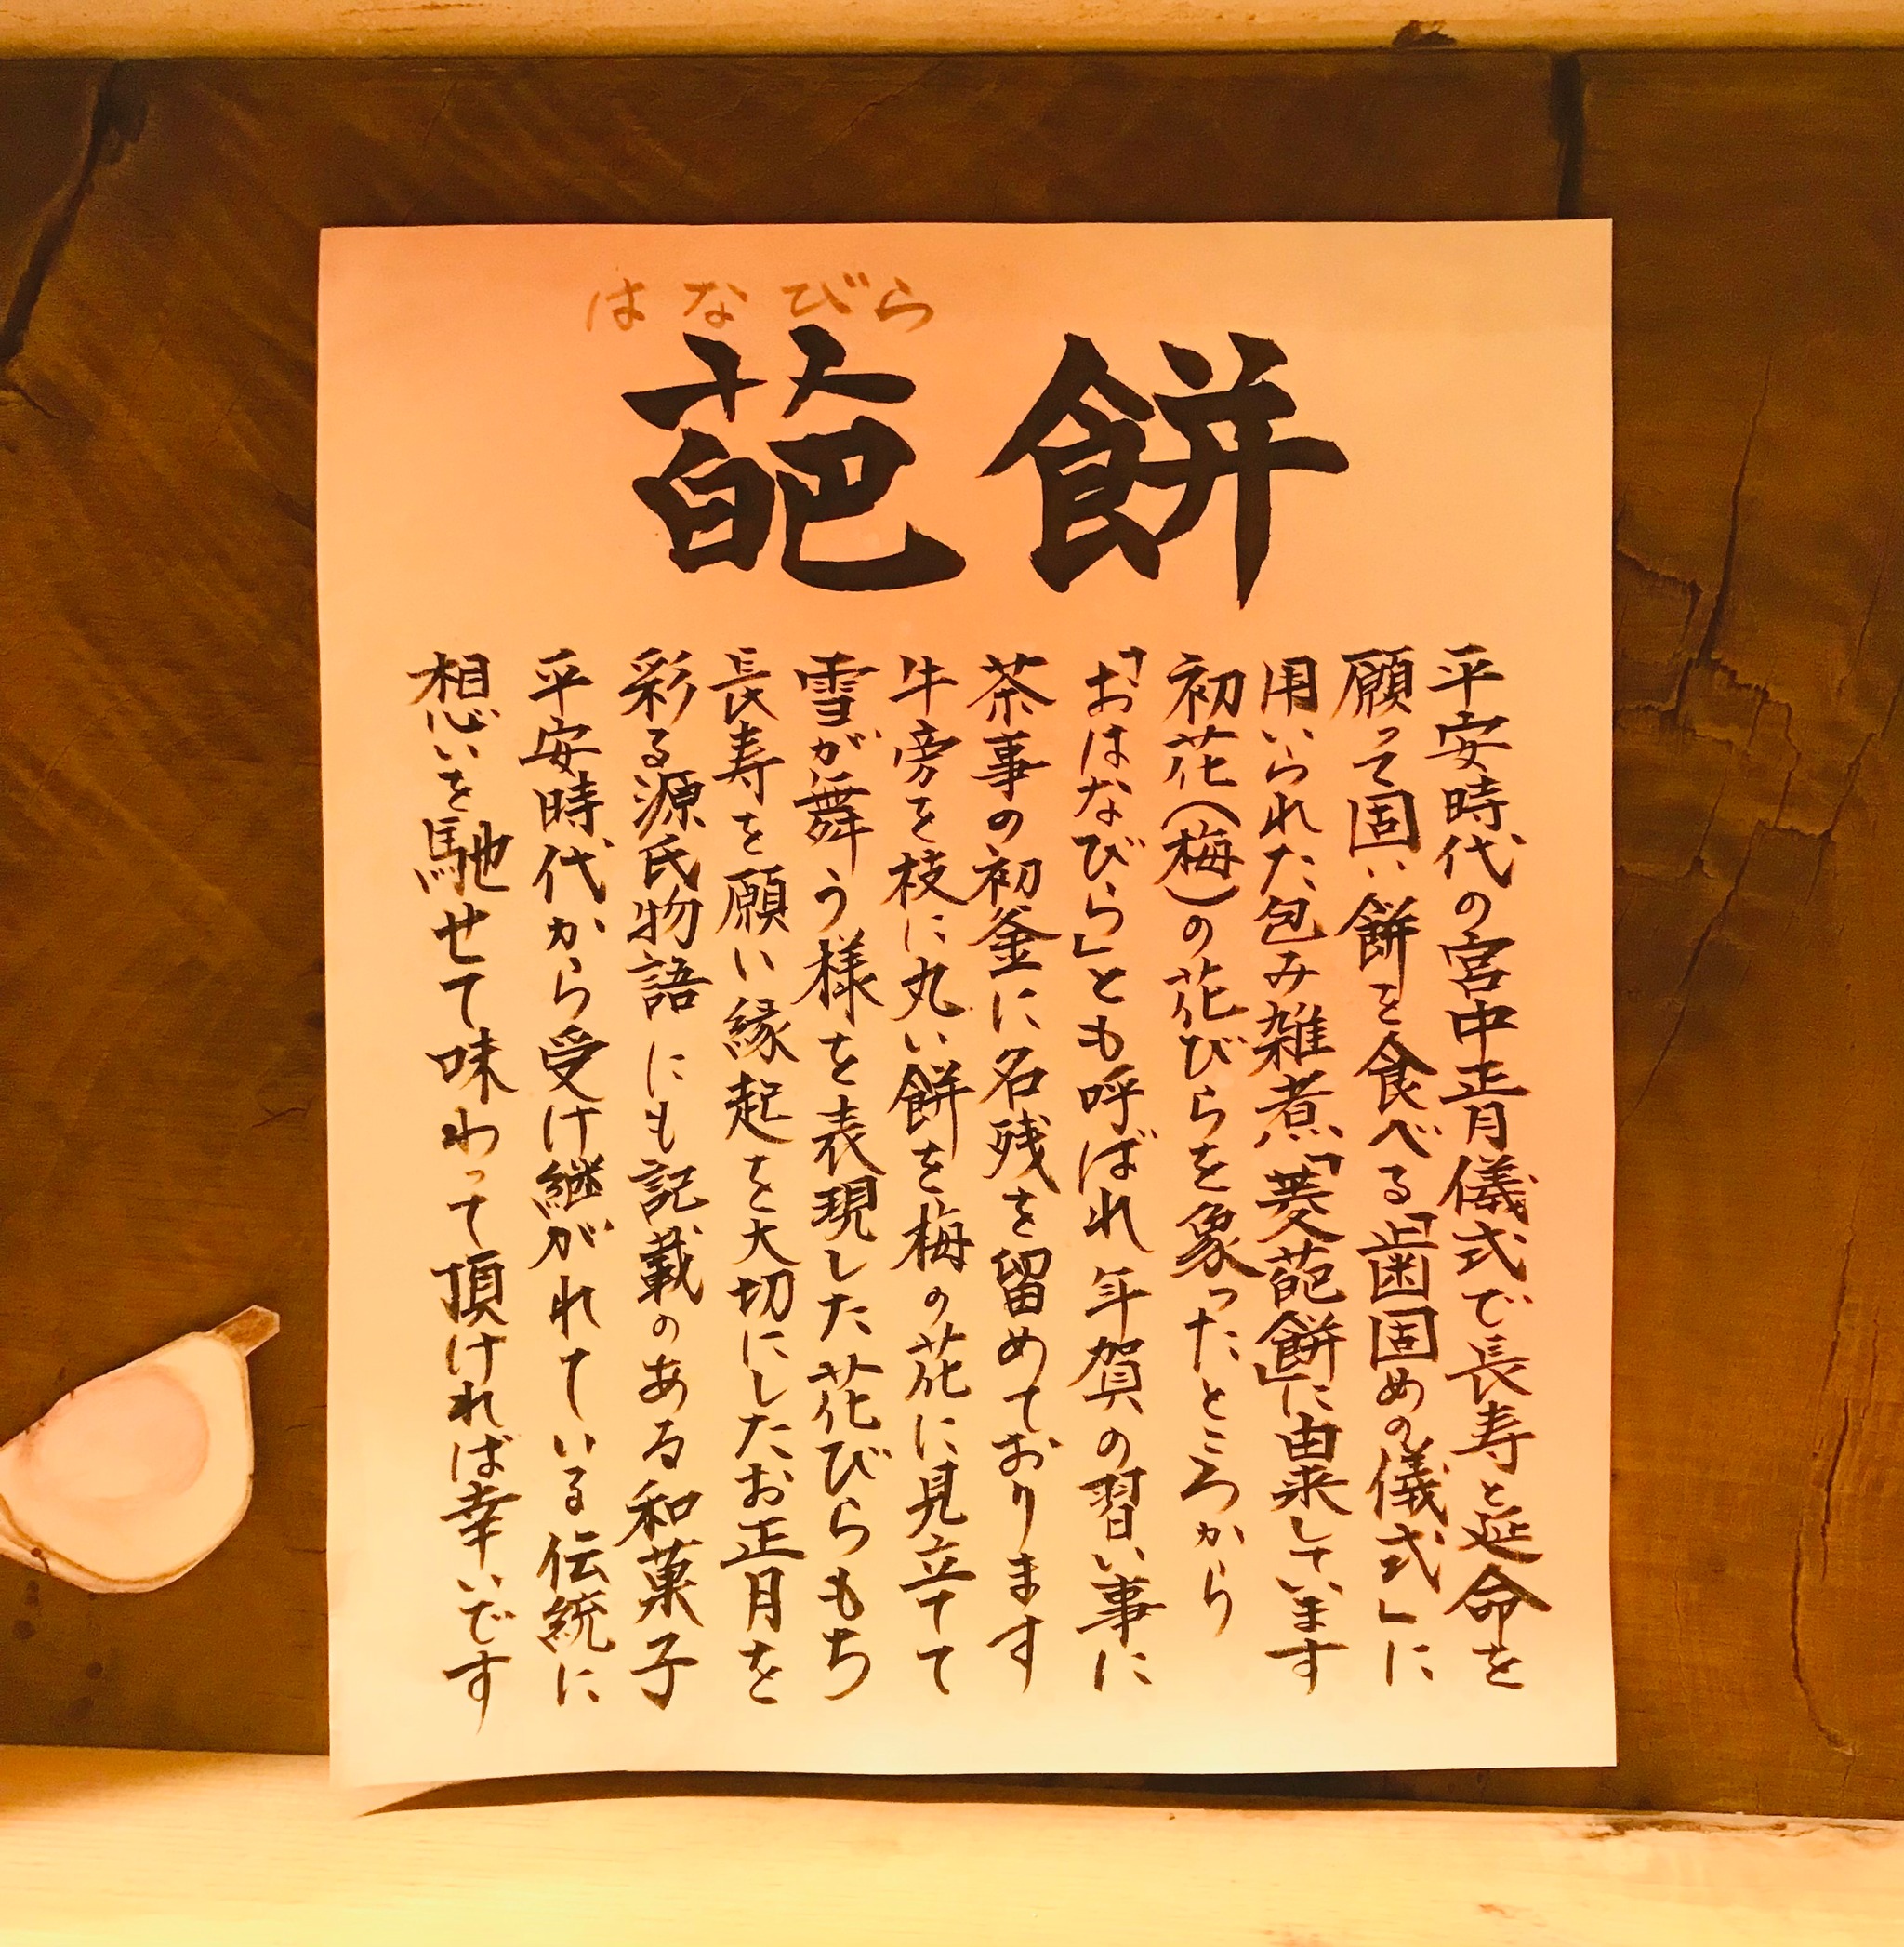 はなびら
葩餅
平安時代の宮中正月儀式で長寿と延命を
願って固い餅を食べる「歯固めの儀式」に
用いられた包み雑煮「菱葩餅」に由来しています
初花(梅)の花びらを象ったところから
「おはなびら」とも呼ばれ年賀の習い事に
茶事の初釜に名残を留めております
牛旁を枝に丸い餅を梅の花に見立てて
雪が舞う様を表現した花びらもち
長寿を願い縁起を大切にしたお正月を
彩る源氏物語にも記載のある和菓子
平安時代から受け継がれている伝統に
想いを馳せて味わって頂ければ幸いです